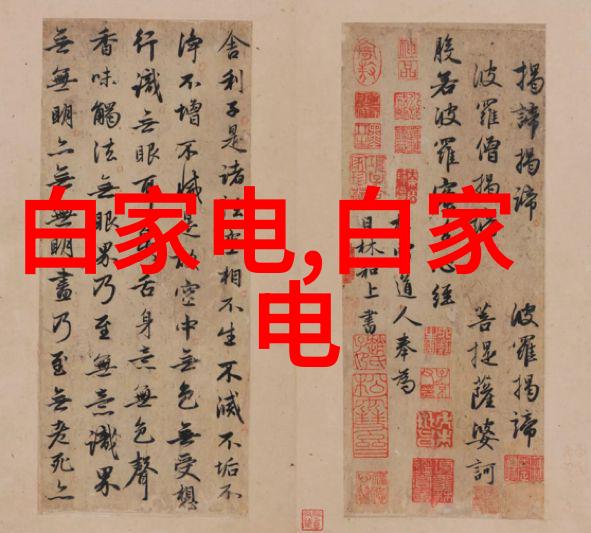 白家电,白家
电
揭諦揭諦 波羅揭諦
波羅僧揭諦 菩提薩婆訶
般若波羅蜜多心經
道人奉為
日林和上書
舍利子是諸法空相不生不滅不垢不
淨不增不減是故空中无色無受想
行識无眼耳鼻舌身意無色聲
香味觸法無眼界乃至無意識界
無無明亦無無明盡乃至無老死亦